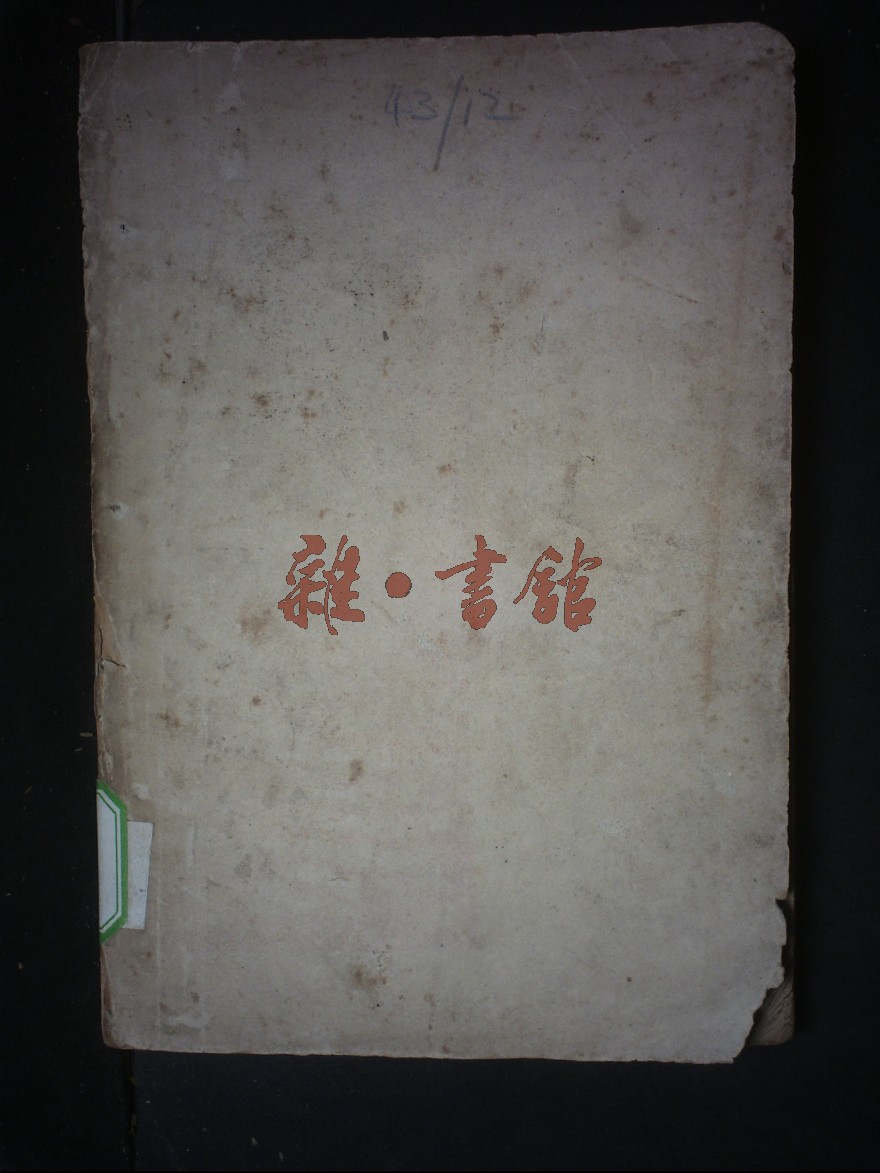 43/12
雜·書館